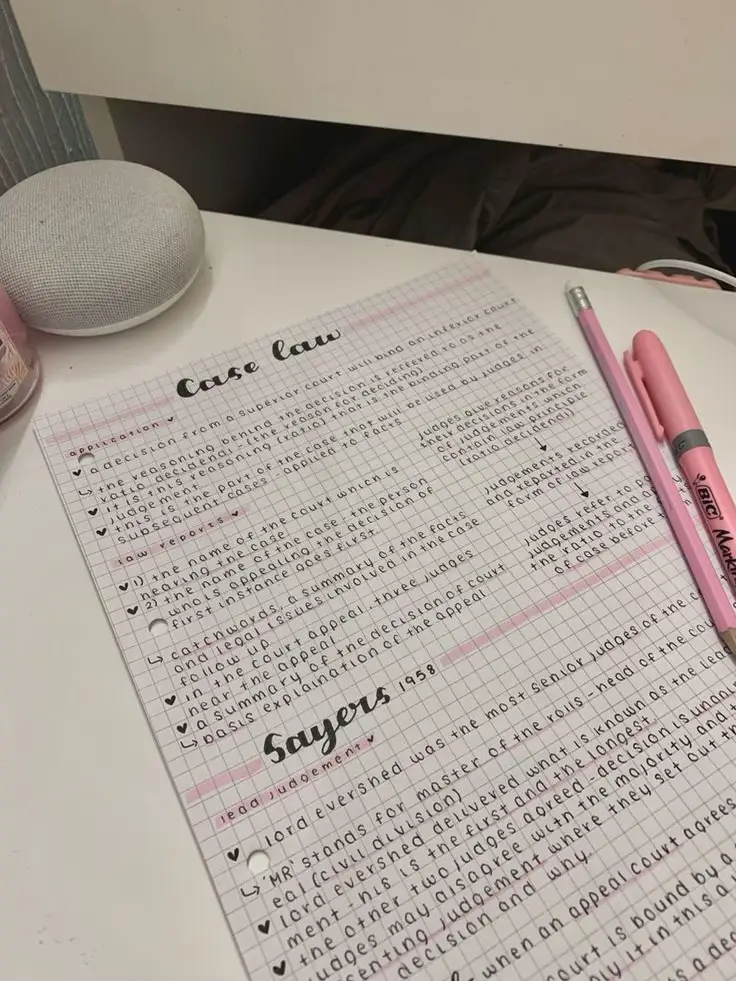 Case law
application
a decision from a superior court will bind an inferior court
↳ the reasoning behind the decision is reffered to as the
ratio decidendi (the reason for deciding)
it is this reasoning (ratio) that is the binding part of the
judgement
this is the part of the case that will be used by judges in
subsequent cases - applied to facts
judges give reasons for
their decisions in the form
of judgements which
contain law principle
(ratio decidendi)
judgements recorded
and reported in the
form of law
judges refer to
judgements
the ratio to the
of case before
law reports
1) the name of the court which is
hearing the case
2) the name of the case: the person
who is appealing the decision of
first instance goes first
↳ catchwords, a summary of the facts
and legal issues involved in the case
follow up
in the court appeal, three judges
hear the appeal
a summary of the decision of court
↳ basis explaination of the appeal
Sayers 1958
lead judgement
lord evershed was the most senior judges of the
↳ 'MR' stands for master of the rolls - head of the
eal (civil division)
lord evershed delivered what is known as the lead
ment - his is the first and the longest.
the other two judges agreed - decision is
judges may disagree with the majority and
senting judgement where they set out
decision and why.
when an appeal court agrees
court is bound by a
it in this a
BIC